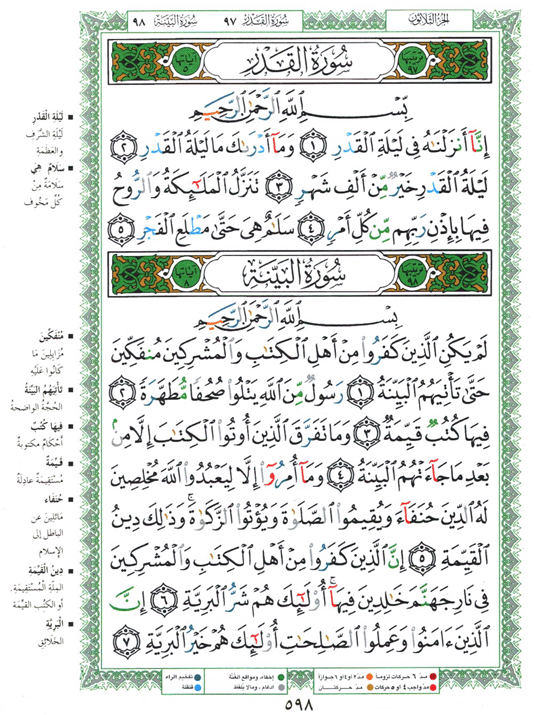 الجزء الثلاثون
سورة القدر ٩٧
سورة البينة ٩٨
ترتيبها ٩٧
سُورَةُ القَدْرِ
آياتها ٥
بِسْمِ اللَّهِ الرَّحْمَٰنِ الرَّحِيمِ
إِنَّآ أَنزَلْنَٰهُ فِى لَيْلَةِ ٱلْقَدْرِ ١ وَمَآ أَدْرَىٰكَ مَا لَيْلَةُ ٱلْقَدْرِ ٢
لَيْلَةُ ٱلْقَدْرِ خَيْرٌ مِّنْ أَلْفِ شَهْرٍ ٣ تَنَزَّلُ ٱلْمَلَٰٓئِكَةُ وَٱلرُّوحُ
فِيهَا بِإِذْنِ رَبِّهِم مِّن كُلِّ أَمْرٍ ٤ سَلَٰمٌ هِىَ حَتَّىٰ مَطْلَعِ ٱلْفَجْرِ ٥
ترتيبها ٩٨
سُورَةُ البَيِّنَة
آياتها ٨
بِسْمِ اللَّهِ الرَّحْمَٰنِ الرَّحِيمِ
لَمْ يَكُنِ ٱلَّذِينَ كَفَرُوا۟ مِنْ أَهْلِ ٱلْكِتَٰبِ وَٱلْمُشْرِكِينَ مُنفَكِّينَ
حَتَّىٰ تَأْتِيَهُمُ ٱلْبَيِّنَةُ ١ رَسُولٌ مِّنَ ٱللَّهِ يَتْلُوا۟ صُحُفًا مُّطَهَّرَةً ٢
فِيهَا كُتُبٌ قَيِّمَةٌ ٣ وَمَا تَفَرَّقَ ٱلَّذِينَ أُوتُوا۟ ٱلْكِتَٰبَ إِلَّا مِنۢ
بَعْدِ مَا جَآءَتْهُمُ ٱلْبَيِّنَةُ ٤ وَمَآ أُمِرُوٓا۟ إِلَّا لِيَعْبُدُوا۟ ٱللَّهَ مُخْلِصِينَ
لَهُ ٱلدِّينَ حُنَفَآءَ وَيُقِيمُوا۟ ٱلصَّلَوٰةَ وَيُؤْتُوا۟ ٱلزَّكَوٰةَ ۚ وَذَٰلِكَ دِينُ
ٱلْقَيِّمَةِ ٥ إِنَّ ٱلَّذِينَ كَفَرُوا۟ مِنْ أَهْلِ ٱلْكِتَٰبِ وَٱلْمُشْرِكِينَ
فِى نَارِ جَهَنَّمَ خَٰلِدِينَ فِيهَآ ۚ أُو۟لَٰٓئِكَ هُمْ شَرُّ ٱلْبَرِيَّةِ ٦ إِنَّ
ٱلَّذِينَ ءَامَنُوا۟ وَعَمِلُوا۟ ٱلصَّٰلِحَٰتِ أُو۟لَٰٓئِكَ هُمْ خَيْرُ ٱلْبَرِيَّةِ ٧
■ لَيْلَةِ الْقَدْرِ
لَيْلَةِ الشَّرَفِ
والعَظَمَةِ
■ سَلَامٌ هِيَ
سَلامَةٌ مِنْ
كُلِّ مَخُوفٍ
■ مُنْفَكِّينَ
مُزَايِلِينَ مَا
كَانُوا عَلَيْهِ
■ تَأْتِيَهُمُ الْبَيِّنَةُ
الحُجَّةُ الواضحةُ
■ فِيهَا كُتُبٌ
أَحْكَامٌ مكتوبةٌ
■ قَيِّمَةٌ
مُسْتَقِيمَةٌ عادِلَةٌ
■ حُنَفَاءَ
مَائِلِينَ عن
الباطل إلى
الإسلام
■ دِينُ الْقَيِّمَةِ
المِلَّةِ المُسْتَقِيمَةِ
أو الكتُبِ القيِّمَة
■ الْبَرِيَّةِ
الخلائِق
مدّ ٦ حركات لزوماً
مدّ ٢ أو ٤ أو ٦ جوازاً
إخفاء، ومواقع الغُنَّة
تفخيم الراء
مدّ واجب ٤ أو ٥ حركات
مدّ حركتان
ادغام ، ومالا يُلفظ
قلقلة
٥٩٨